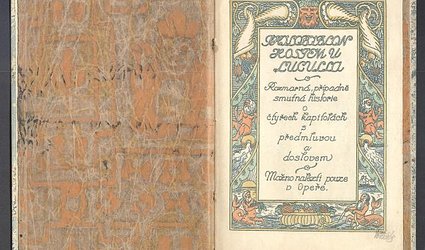 HOSTEM U
LUCULLA
Rozmarná, případně
smutná historie
o
čtyřech kapitolách
s
předmluvou
a
doslovem
Možno nalézti pouze
v Opeře.